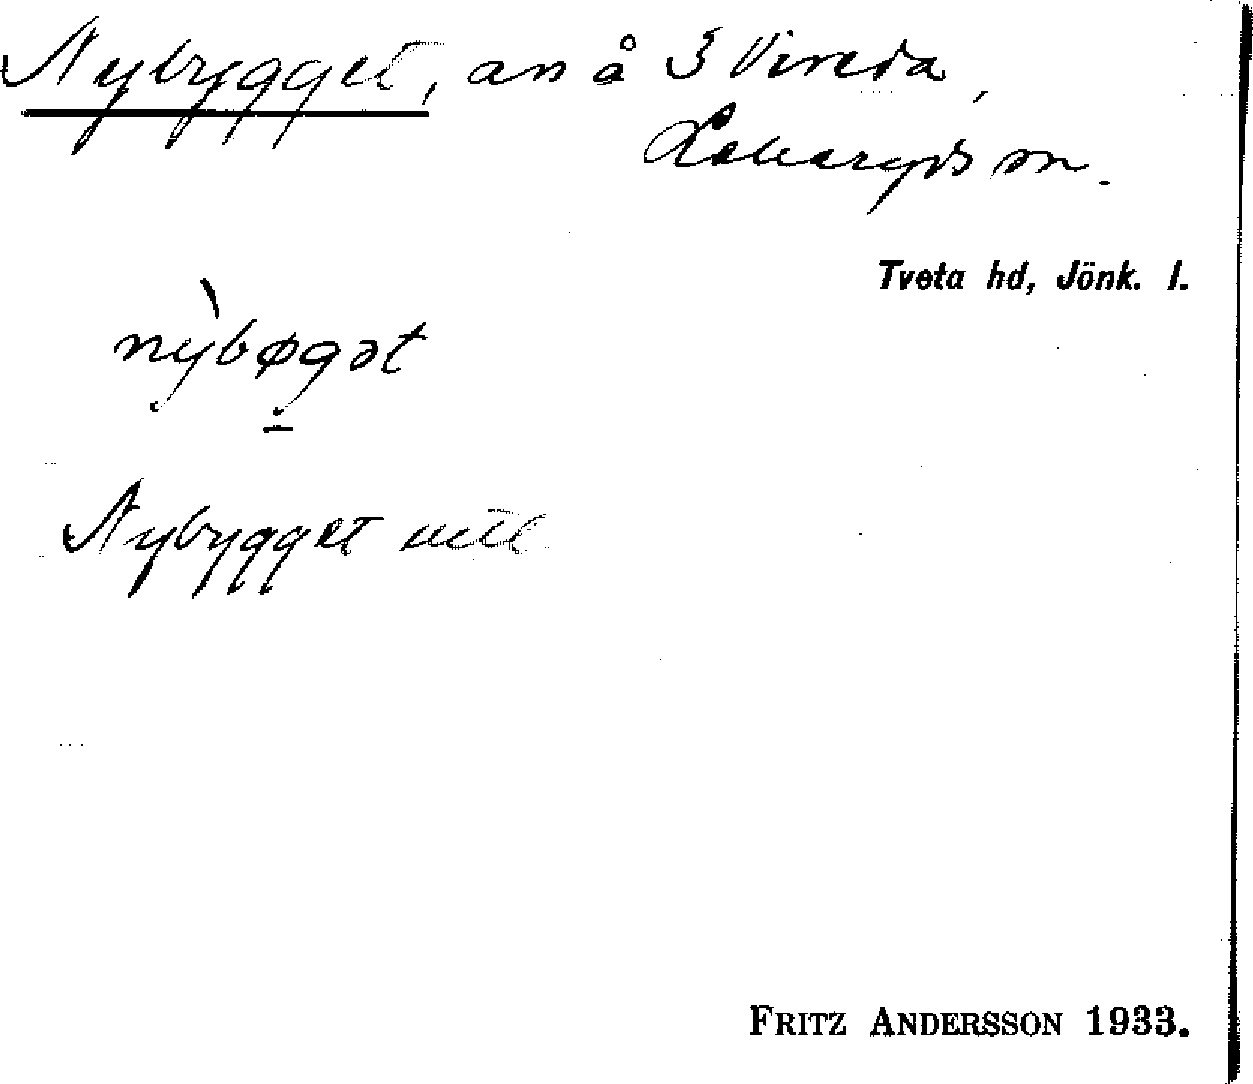 Nybygget, an å 3 Vireda,
Lekeryds sn.
Tveta hd, Jönk. l.
nỳbøgət
Nybygget
FRITZ ANDERSSON 1933.